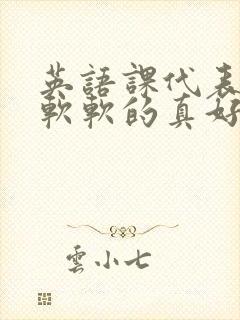 英語課代表
軟軟的真好
雲小七